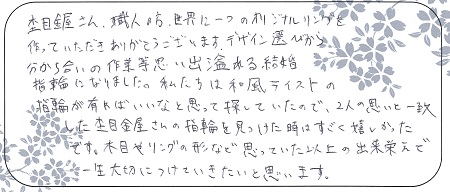 杢目金屋さん、職人の方、世界に一つのオリジナルリングを
作っていただきありがとうございます。デザイン選びから
分かち合いの作業等思い出溢れる結婚
指輪になりました。私たちは和風テイストの
指輪が有ればいいなと思って探していたので、2人の思いと一致
した杢目金屋さんの指輪を見つけた時はすごく嬉しかった
です。木目やリングの形など思っていた以上の出来栄えで
一生大切につけていきたいと思います。